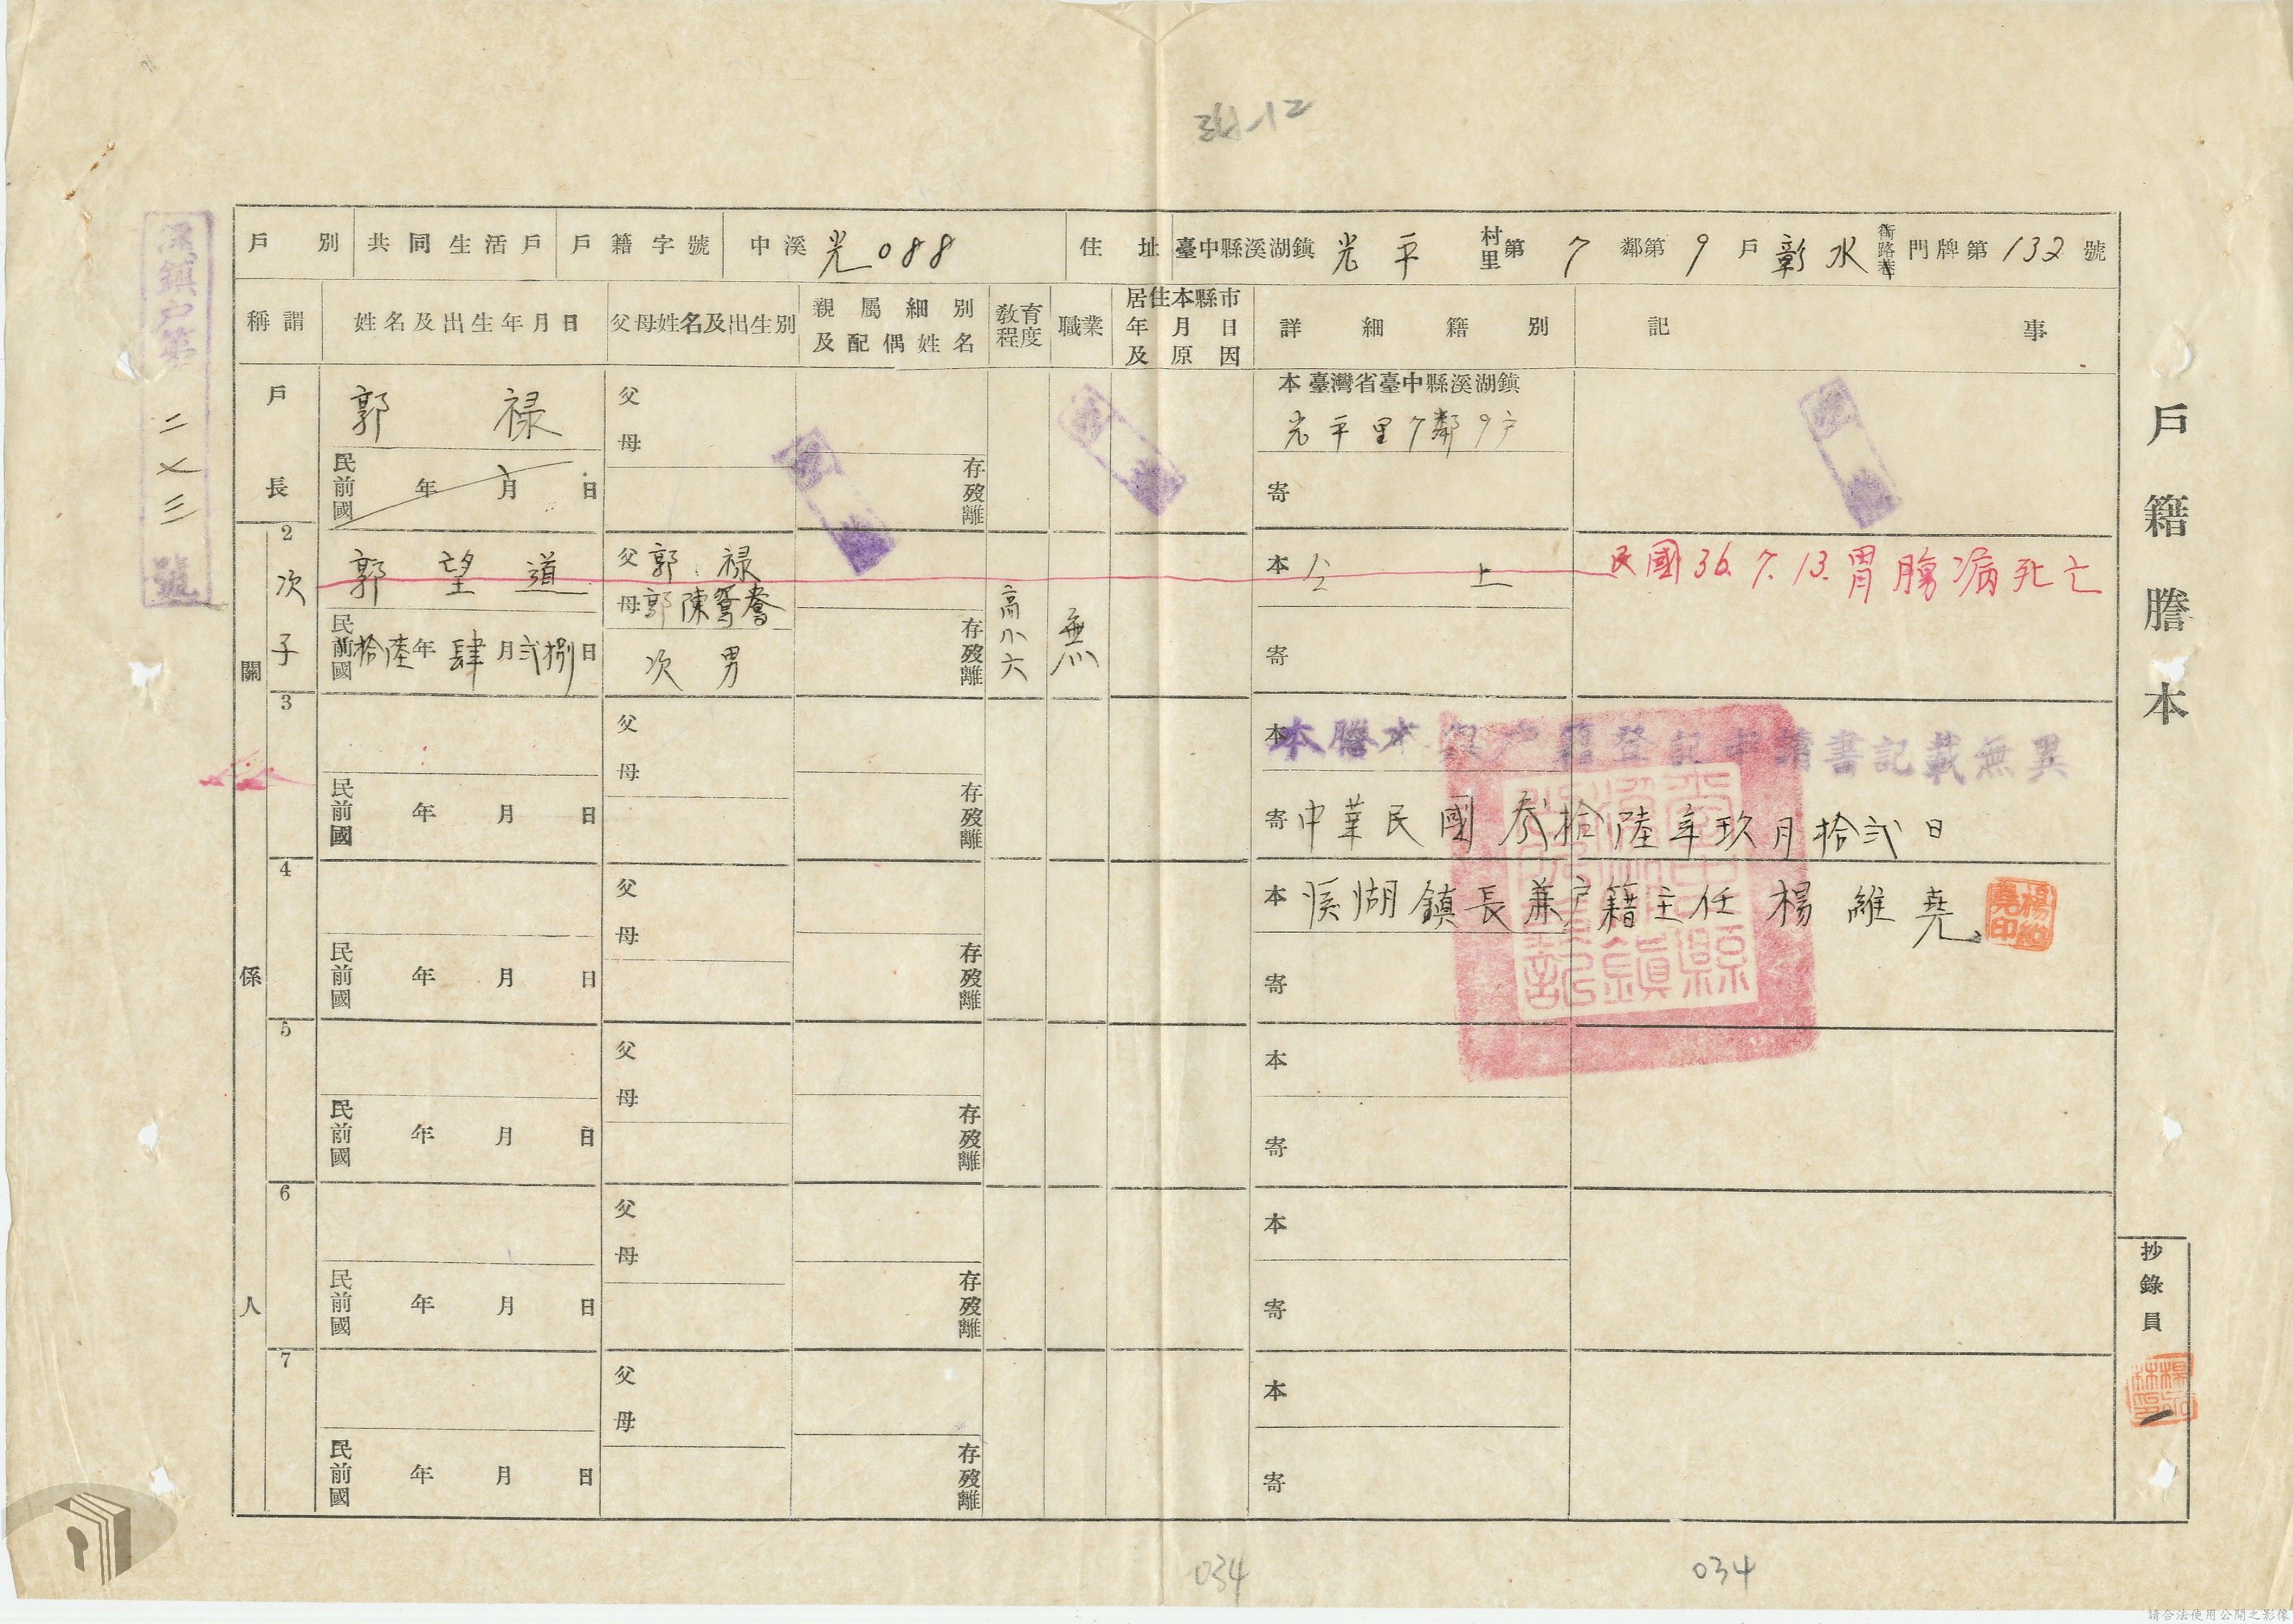 34-12
戶籍謄本
戶別 共同生活戶 戶籍字號 中溪光088 住址 臺中縣溪湖鎮光平村里第7鄰第9戶彰水街路巷門牌第132號
稱謂 姓名及出生年月日 父母姓名及出生別 親屬細別及配偶姓名 教育程度 職業 居住本縣市年月日及原因 詳細籍別 記事
戶長 郭禄 父 母 存歿離 本 臺灣省臺中縣溪湖鎮
光平里7鄰9戶
民前國 年 月 日 寄
關係人
2 次子 郭望道 父 郭禄 母 郭陳鴛鴦 高小六 無 本 仝上 民國36.7.13.胃腸病死亡
民前國 拾陸年肆月弍捌日 次男 存歿離 寄
3 父 母 本 本謄本與戶籍登記申請書記載無異
民前國 年 月 日 存歿離 寄 中華民國叁拾陸年玖月拾弍日
4 父 母 本 溪湖鎮長兼戶籍主任 楊維堯 楊維堯印
民前國 年 月 日 存歿離 寄
5 父 母 本
民前國 年 月 日 存歿離 寄
6 父 母 本
民前國 年 月 日 存歿離 寄
7 父 母 本
民前國 年 月 日 存歿離 寄
抄錄員
溪鎮戶第二乂三號
034
034
請合法使用公開之影像